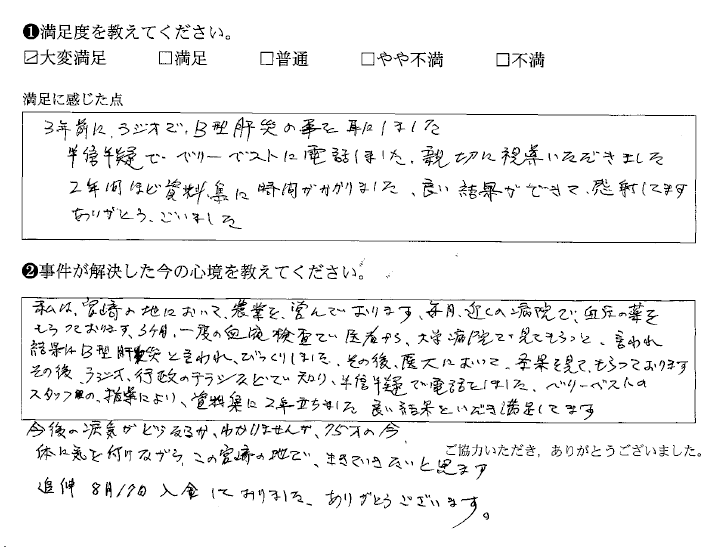 ❶満足度を教えてください。
☑大変満足 □満足 □普通 □やや不満 □不満
満足に感じた点
3年前に、ラジオで、B型肝炎の事を耳にしました
半信半疑で ベリーベストに電話しました、親切に視導いただきました
2年間ほど資料集に時間がかかりました、良い結果ができて、感謝してます
ありがとう、ございました
❷事件が解決した今の心境を教えてください。
私は、宮崎の地において、農業を、営んでおります、毎月、近くの病院で、血圧の薬を
もらっております、3ヶ月、一度の血液検査で医者から、大学病院で見てもらっと、言われ
結果はB型肝炎と言われ、びっくりしました、その後、医大において、年見て、もらっております
その後、ラジオ、行政のチラシなどで知り、半信半疑で電話をしました、ベリーベストの
スタッフ の、指導により、資料集に2年立ちました 良い結果をいただき満足してます
今後の病気がどうなるか、わかりませんが、75才の今、
体に気を付けながら、この宮崎の地で、生きていきたいと思ます
ご協力いただき、ありがとうございました。
追伸 8月17日 入金しておりました、ありがとうございます。